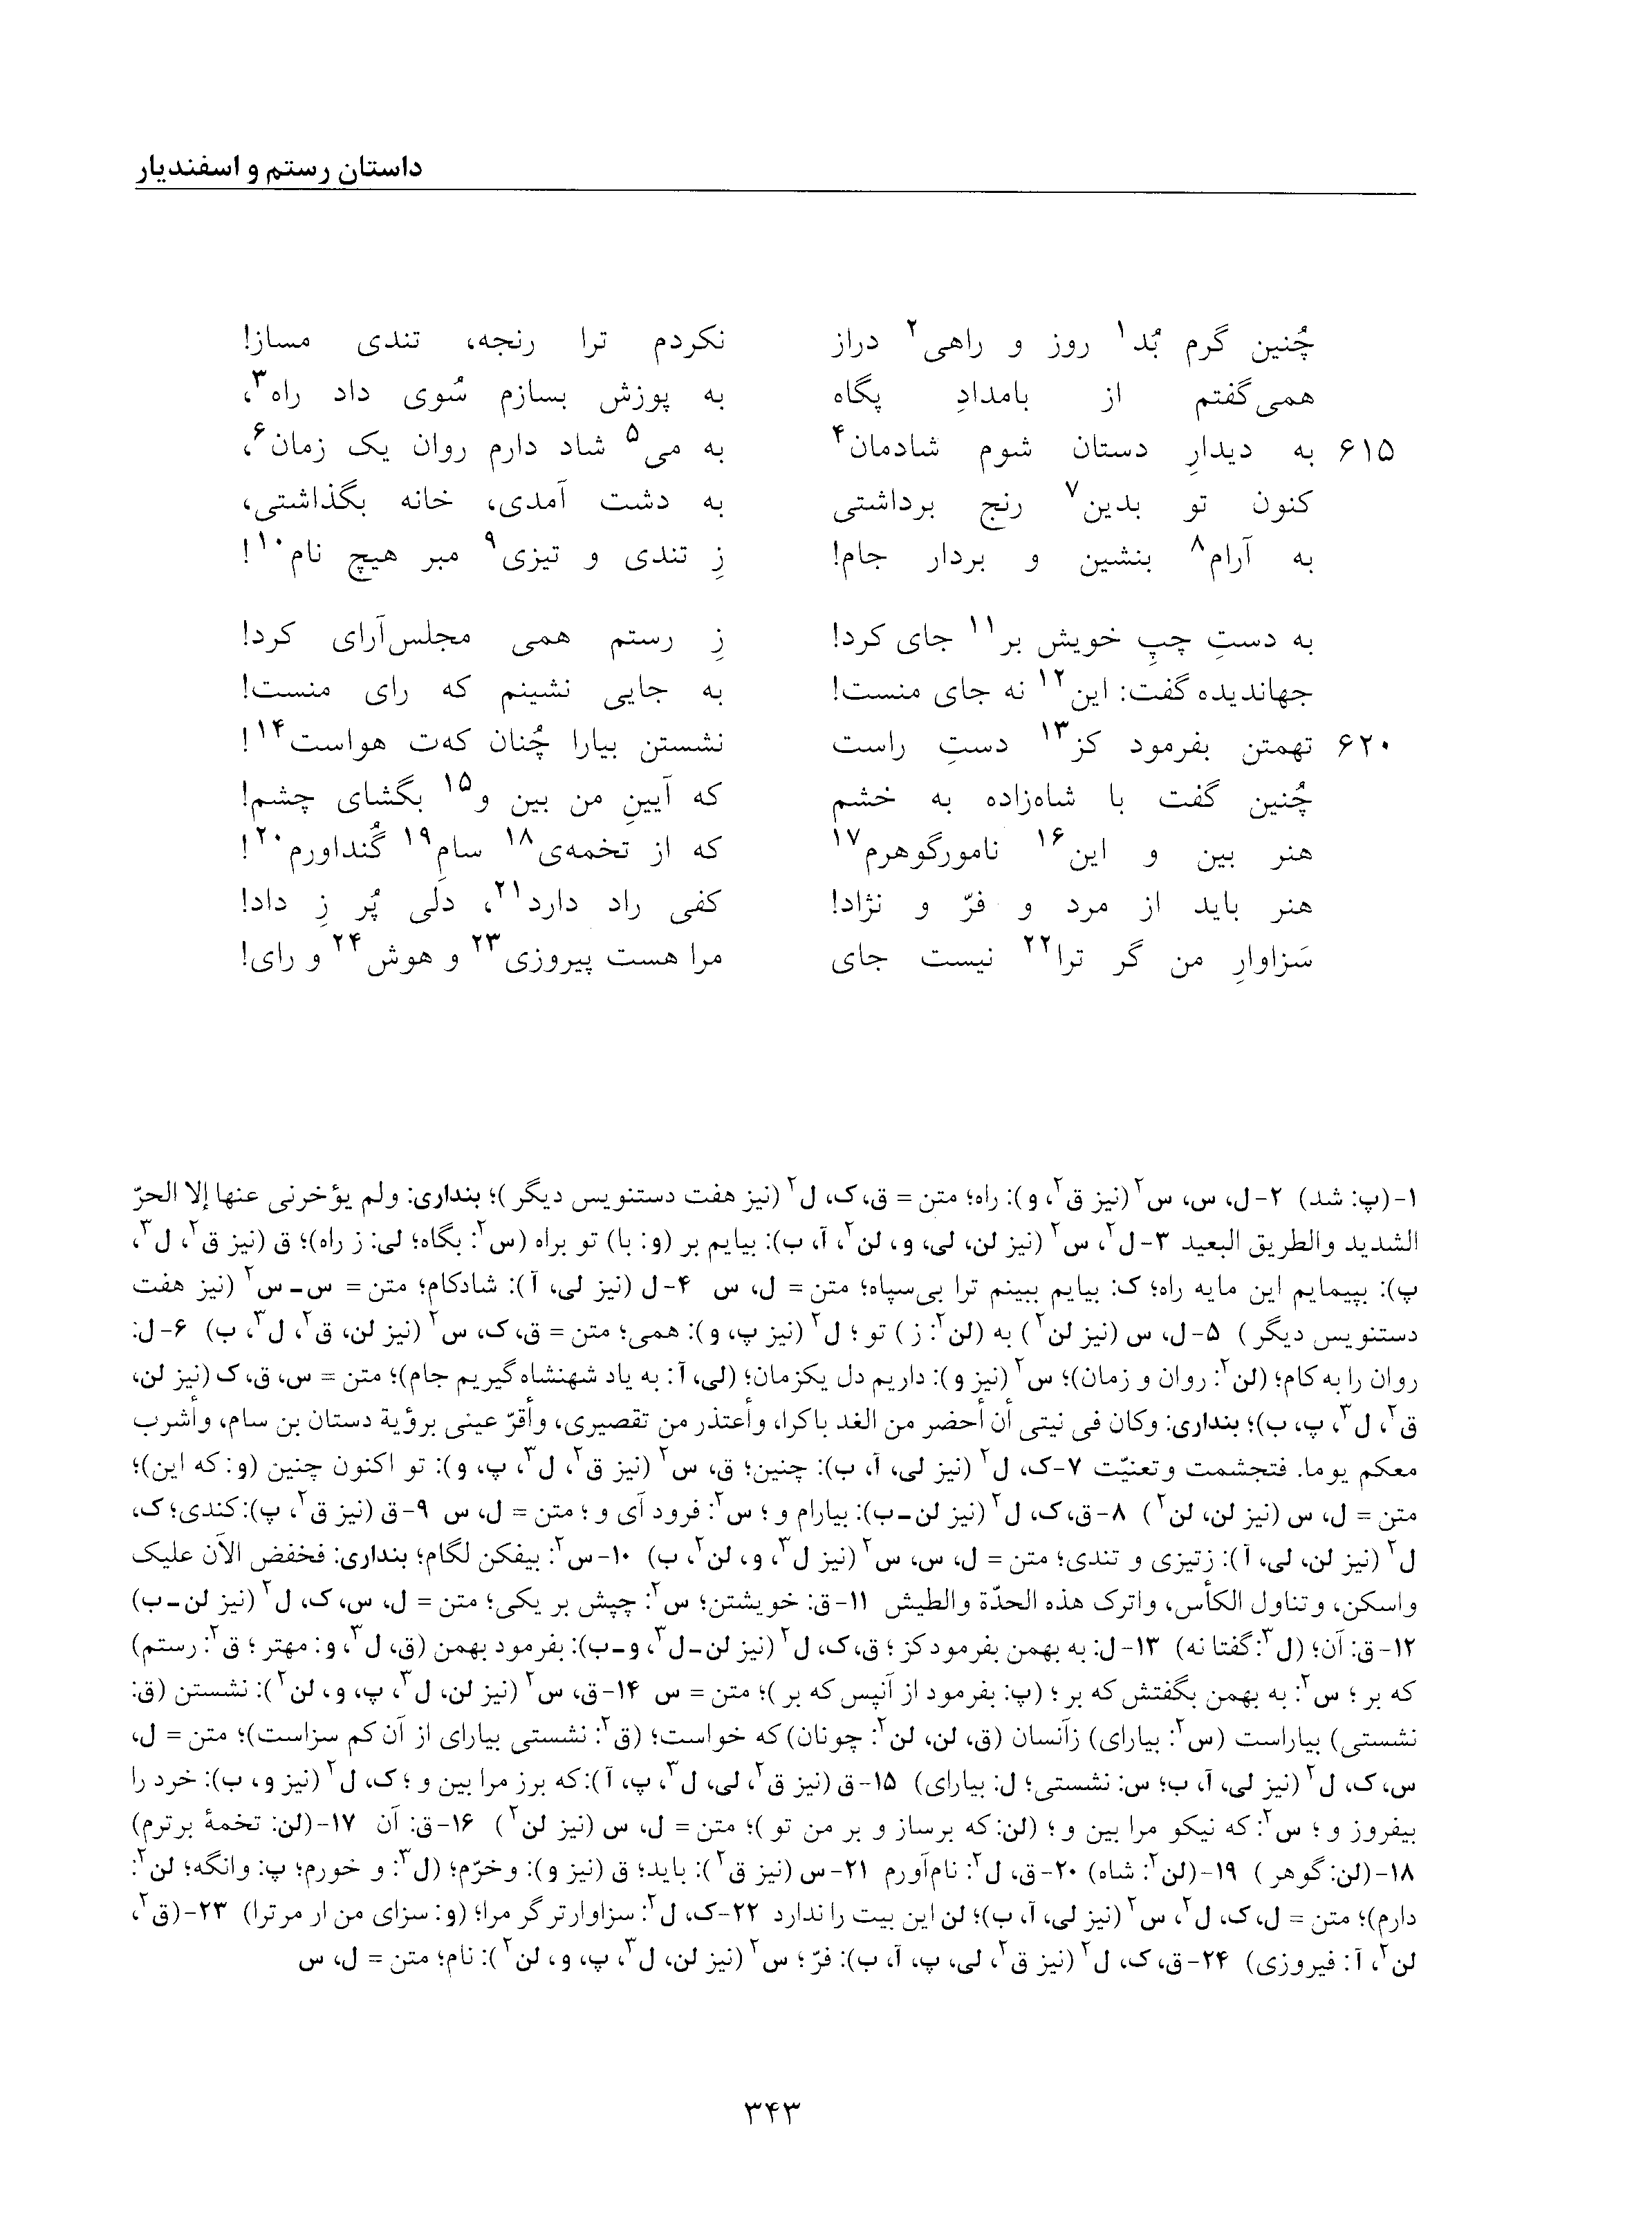 داستان رستم و اسفندیار
چُنین گرم بُد۱ روز و راهی۲ دراز نکردم ترا رنجه، تندی مساز!
همی‌گفتم از بامدادِ پگاه به پوزش بسازم سُوی داد راه۳،
۶۱۵ به دیدارِ دستان شوم شادمان۴ به می۵ شاد دارم روان یک زمان۶،
کنون تو بدین۷ رنج برداشتی به دشت آمدی، خانه بگذاشتی،
به آرام۸ بنشین و بردار جام! زِ تندی و تیزی۹ مبر هیچ نام۱۰!
به دستِ چپِ خویش بر۱۱ جای کرد! زِ رستم همی مجلس‌آرای کرد!
جهاندیده گفت: این۱۲ نه جای منست! به جایی نشینم که رای منست!
۶۲۰ تهمتن بفرمود کز۱۳ دستِ راست نشستن بیارا چُنان که‌ت هواست۱۴!
چُنین گفت با شاه‌زاده به خشم که آیینِ من بین و۱۵ بگشای چشم!
هنر بین و این۱۶ نامورگوهرم۱۷ که از تخمه‌ی۱۸ سامِ۱۹ گُنداورم۲۰!
هنر باید از مرد و فرّ و نژاد! کفی راد دارد۲۱، دلی پُر زِ داد!
سَزاوارِ من گر ترا۲۲ نیست جای مرا هست پیروزی۲۳ و هوش۲۴ و رای!
۱-(پ: شد) ۲-ل، س، س۲ (نیز ق۲، و): راه؛ متن = ق، ک، ل۲ (نیز هفت دستنویس دیگر)؛ بنداری: ولم یؤخرنی عنها إلا الحرّ
الشدید والطریق البعید ۳-ل۲، س۲ (نیز لن، لی، و، لن۲، آ، ب): بیایم بر (و: با) تو براه (س۲: بگاه؛ لی: ز راه)؛ ق (نیز ق۲، ل۳،
پ): بپیمایم این مایه راه؛ ک: بیایم ببینم ترا بی‌سپاه؛ متن = ل، س ۴-ل (نیز لی، آ): شادکام؛ متن = س-س۲ (نیز هفت
دستنویس دیگر) ۵-ل، س (نیز لن۲) به (لن۲: ز) تو؛ ل۲ (نیز پ، و): همی؛ متن = ق، ک، س۲ (نیز لن، ق۲، ل۳، ب) ۶-ل:
روان را به کام؛ (لن۲: روان و زمان)؛ س۲ (نیز و): داریم دل یکزمان؛ (لی، آ: به یاد شهنشاه گیریم جام)؛ متن = س، ق، ک (نیز لن،
ق۲، ل۳، پ، ب)؛ بنداری: وکان فی نیتی أن أحضر من الغد باکرا، وأعتذر من تقصیری، وأقرّ عینی برؤیة دستان بن سام، وأشرب
معکم یوما. فتجشمت وتعنیّت ۷-ک، ل۲ (نیز لی، آ، ب): چنین؛ ق، س۲ (نیز ق۲، ل۳، پ، و): تو اکنون چنین (و: که این)؛
متن = ل، س (نیز لن، لن۲) ۸-ق، ک، ل۲ (نیز لن-ب): بیارام و؛ س۲: فرود آی و؛ متن = ل، س ۹-ق (نیز ق۲، پ): کندی؛ ک،
ل۲ (نیز لن، لی، آ): زتیزی و تندی؛ متن = ل، س، س۲ (نیز ل۳، و، لن۲، ب) ۱۰-س۲: بیفکن لگام؛ بنداری: فخفض الآن علیک
واسکن، وتناول الکأس، واترک هذه الحدّة والطیش ۱۱-ق: خویشتن؛ س۲: چپش بر یکی؛ متن = ل، س، ک، ل۲ (نیز لن-ب)
۱۲-ق: آن؛ (ل۳: گفتا نه) ۱۳-ل: به بهمن بفرمود کز؛ ق، ک، ل۲ (نیز لن-ل۳، و-ب): بفرمود بهمن (ق، ل۳، و: مهتر؛ ق۲: رستم)
که بر؛ س۲: به بهمن بگفتش که بر؛ (پ: بفرمود از آنپس که بر)؛ متن = س ۱۴-ق، س۲ (نیز لن، ل۳، پ، و، لن۲): نشستن (ق:
نشستی) بیاراست (س۲: بیارای) زآنسان (ق، لن، لن۲: چونان) که خواست؛ (ق۲: نشستی بیارای از آن کم سزاست)؛ متن = ل،
س، ک، ل۲ (نیز لی، آ، ب؛ س: نشستی؛ ل: بیارای) ۱۵-ق (نیز ق۲، لی، ل۳، پ، آ): که برز مرا بین و؛ ک، ل۲ (نیز و، ب): خرد را
بیفروز و؛ س۲: که نیکو مرا بین و؛ (لن: که برساز و بر من تو)؛ متن = ل، س (نیز لن۲) ۱۶-ق: آن ۱۷-(لن: تخمهٔ برترم)
۱۸-(لن: گوهر) ۱۹-(لن۲: شاه) ۲۰-ق، ل۲: نام‌آورم ۲۱-س (نیز ق۲): باید؛ ق (نیز و): وخرّم؛ (ل۳: و خورم؛ پ: وانگه؛ لن۲:
دارم)؛ متن = ل، ک، ل۲، س۲ (نیز لی، آ، ب)؛ لن این بیت را ندارد ۲۲-ک، ل۲: سزاوارتر گر مرا؛ (و: سزای من ار مر ترا) ۲۳-(ق۲،
لن۲، آ: فیروزی) ۲۴-ق، ک، ل۲ (نیز ق۲، لی، پ، آ، ب): فرّ؛ س۲ (نیز لن، ل۳، پ، و، لن۲): نام؛ متن = ل، س
۳۴۳